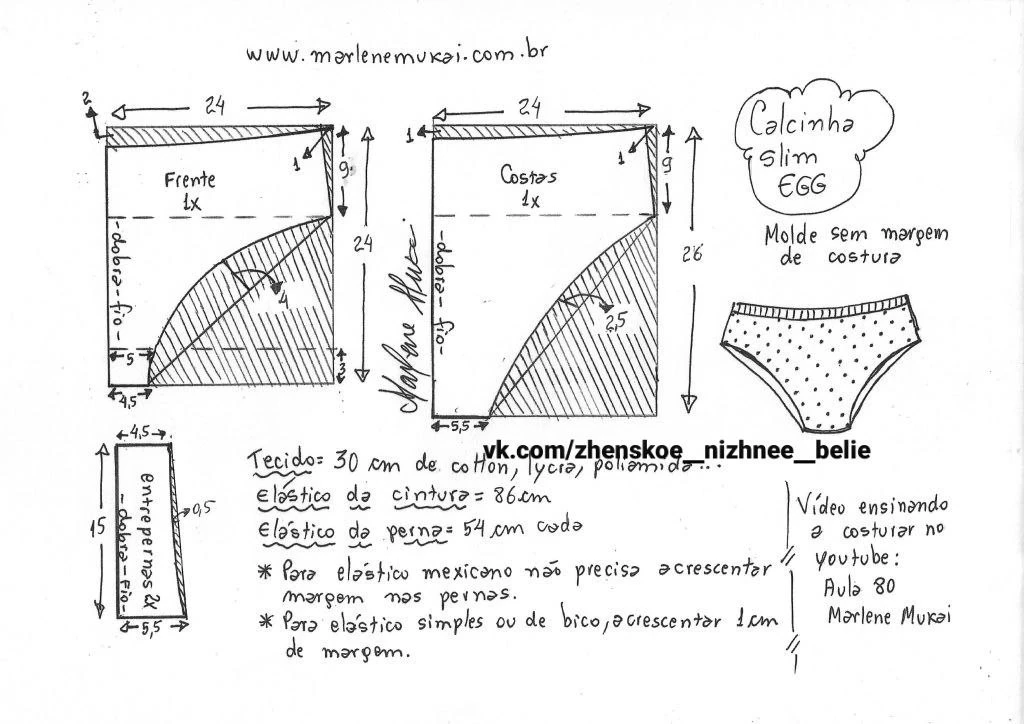 www.marlenemukai.com.br
2
24
1
9
Frente
1x
24
-dobra-fio-
4
5
3
4,5
24
1
1
9
Costas
1x
26
-dobra-fio-
2,5
5,5
Marlene Mukai
Calcinha
slim
EGG
Molde sem margem
de costura
4,5
15
entrepernas 2x
-dobra-fio-
0,5
5,5
vk.com/zhenskoe_nizhnee_belie
Tecido= 30 cm de cotton, lycra, poliamida...
Elástico da cintura= 86cm
Elástico da perna= 54 cm cada
* Para elástico mexicano não precisa acrescentar
margem nas pernas.
* Para elástico simples ou de bico, acrescentar 1cm
de margem.
Vídeo ensinando
a costurar no
youtube:
Aula 80
Marlene Mukai